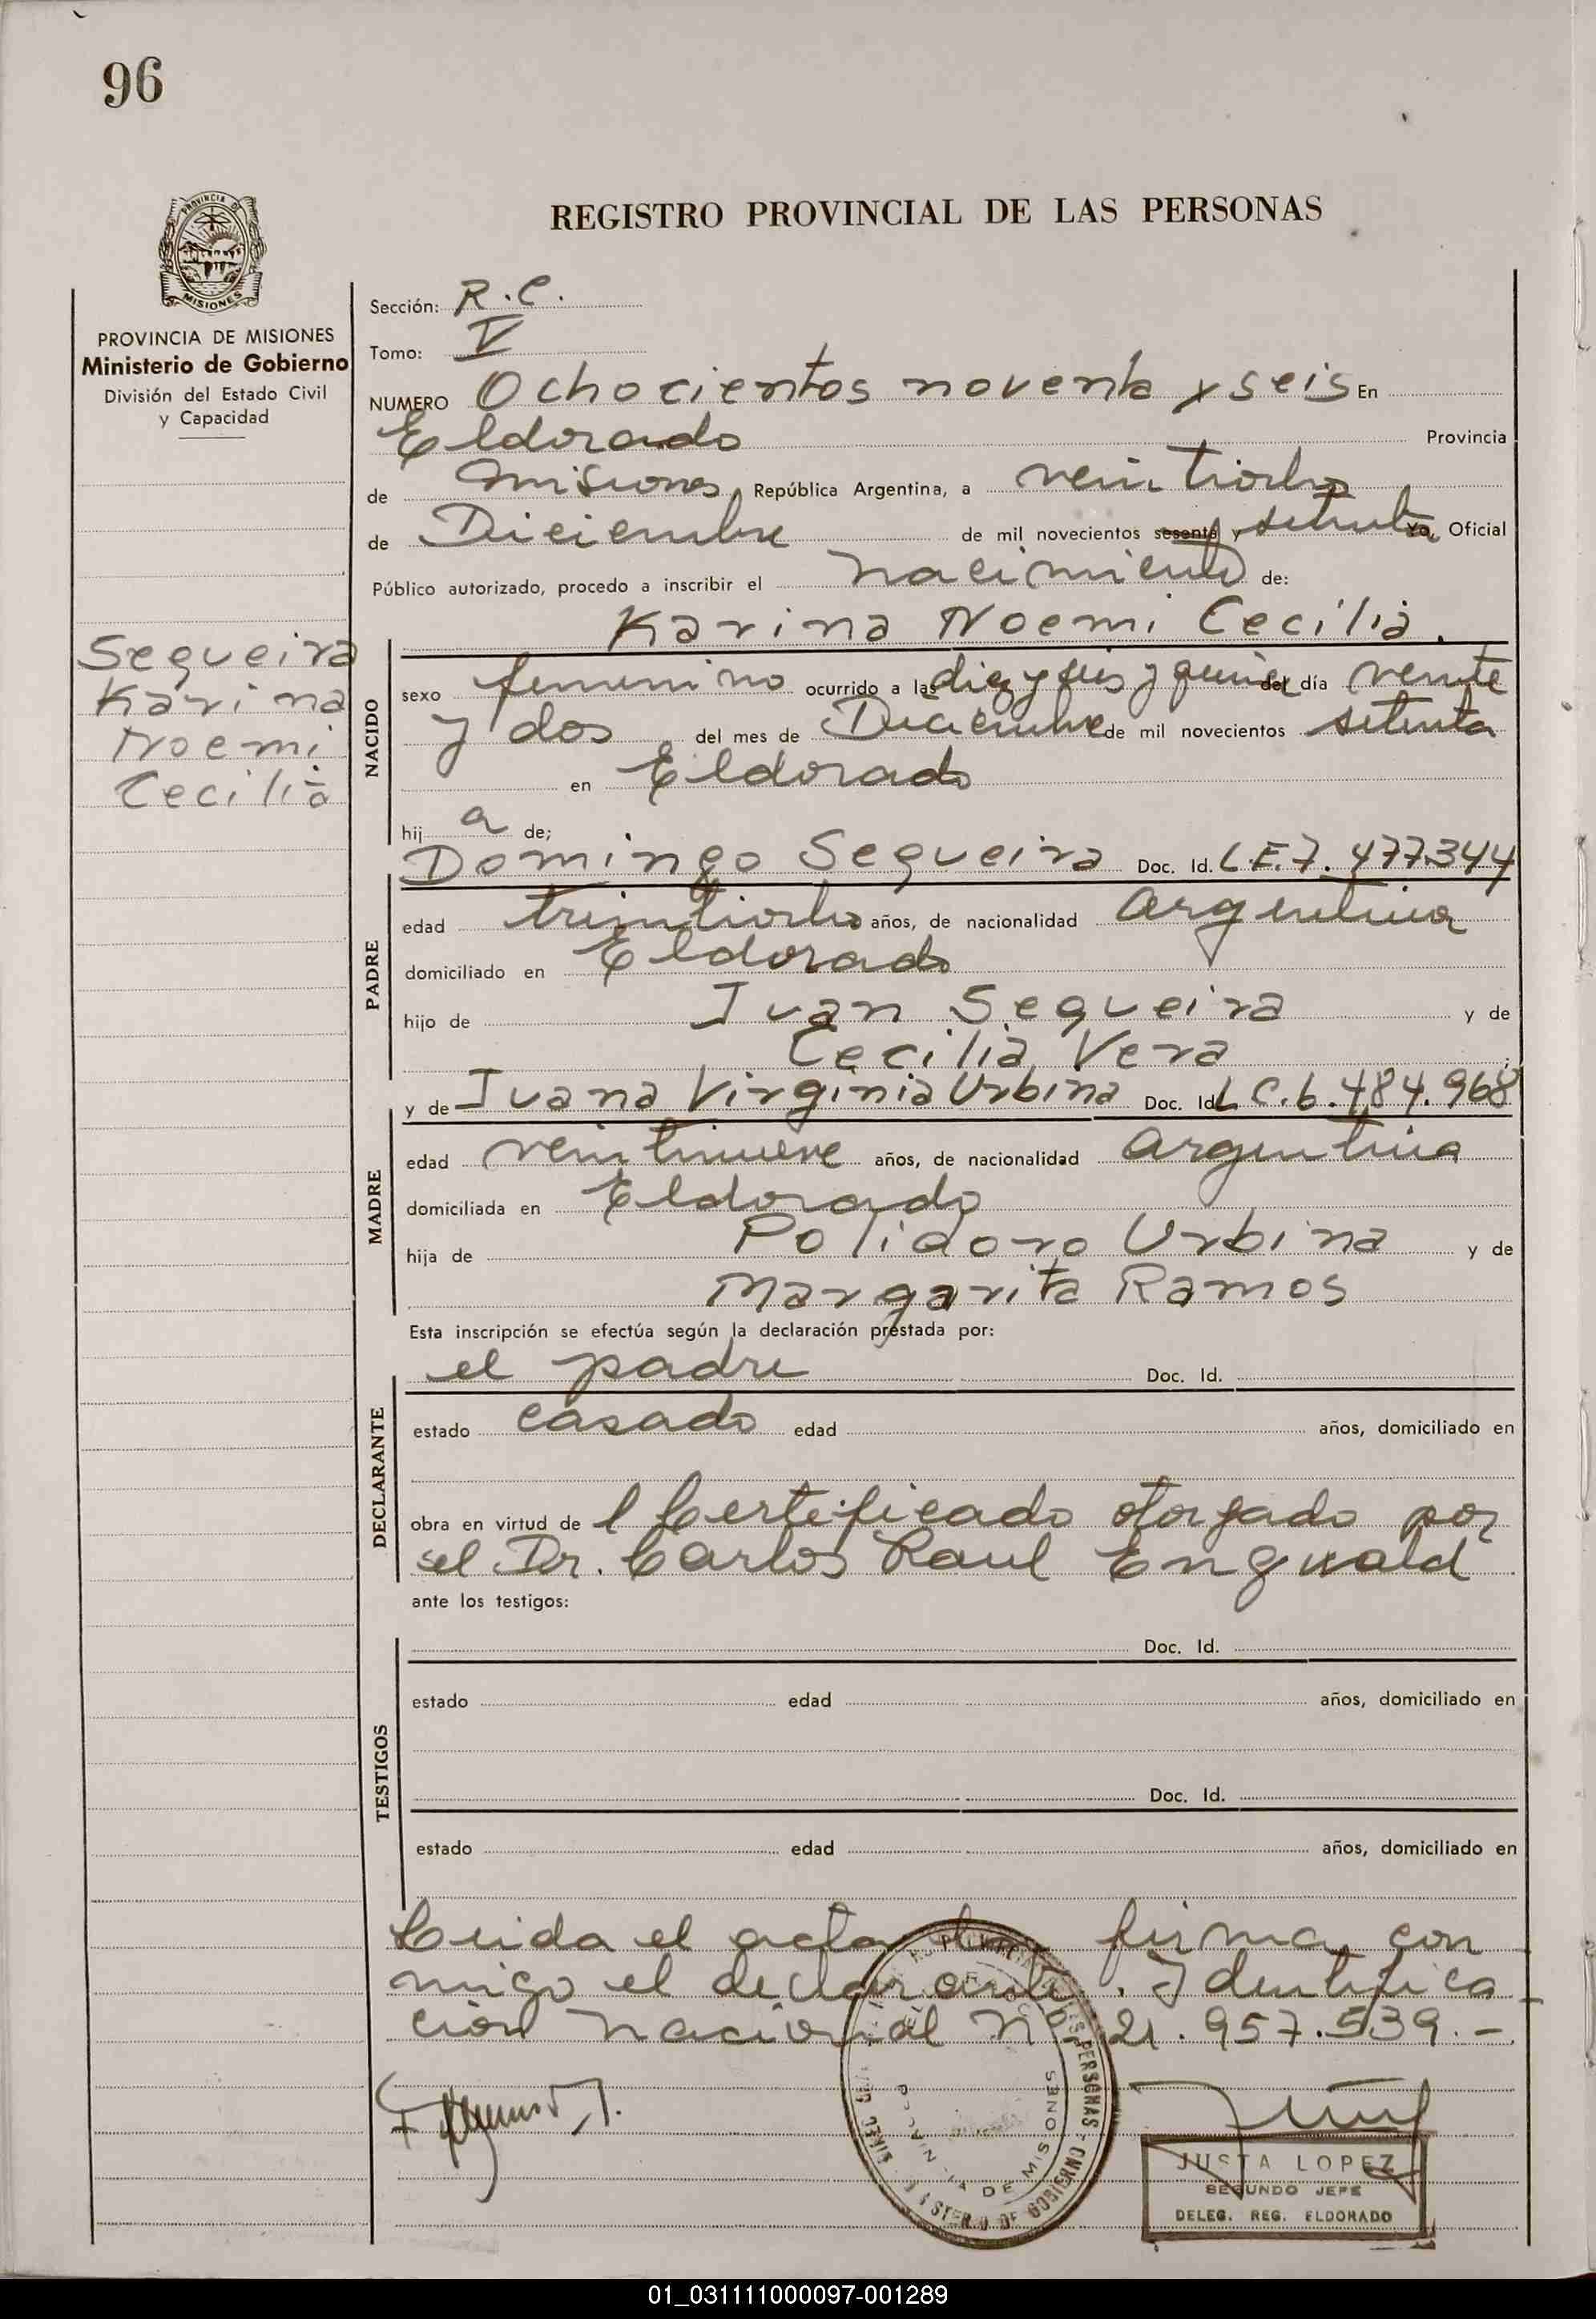 96
PROVINCIA DE
MISIONES
PROVINCIA DE MISIONES
Ministerio de Gobierno
División del Estado Civil
y Capacidad
Sequeira
Karina
Noemi
Cecilia
REGISTRO PROVINCIAL DE LAS PERSONAS
Sección: R.C.
Tomo: V
NUMERO Ochocientos noventa y seis En
Eldorado Provincia
de Misiones, República Argentina, a veintiocho
de Diciembre de mil novecientos sesenta y setenta Yo, Oficial
Público autorizado, procedo a inscribir el nacimiento de:
Karina Noemi Cecilia.
NACIDO
sexo femenino ocurrido a las diez y seis y quince del día veinte
y dos del mes de Diciembre de mil novecientos setenta
en Eldorado
hij a de;
Domingo Sequeira Doc. Id. L.E.7.477.344
PADRE
edad treintiocho años, de nacionalidad argentina
domiciliado en Eldorado
hijo de Juan Sequeira y de
Cecilia Vera
y de Juana Virginia Urbina Doc. Id. L.C.6.484.968
MADRE
edad veintinueve años, de nacionalidad argentina
domiciliada en Eldorado
hija de Polidoro Urbina y de
Margarita Ramos
Esta inscripción se efectúa según la declaración prestada por:
el padre Doc. Id.
DECLARANTE
estado casado edad años, domiciliado en
obra en virtud de l Certificado otorgado por
el Dr. Carlos Raul Engwald
ante los testigos:
Doc. Id.
TESTIGOS
estado edad años, domiciliado en
Doc. Id.
estado edad años, domiciliado en
Leida el acta firma con
migo el declarante. Identifica
ción nacional Nº 21.957.539.-
JUSTA LOPEZ
SEGUNDO JEFE
DELEG. REG. ELDORADO
01_031111000097-001289